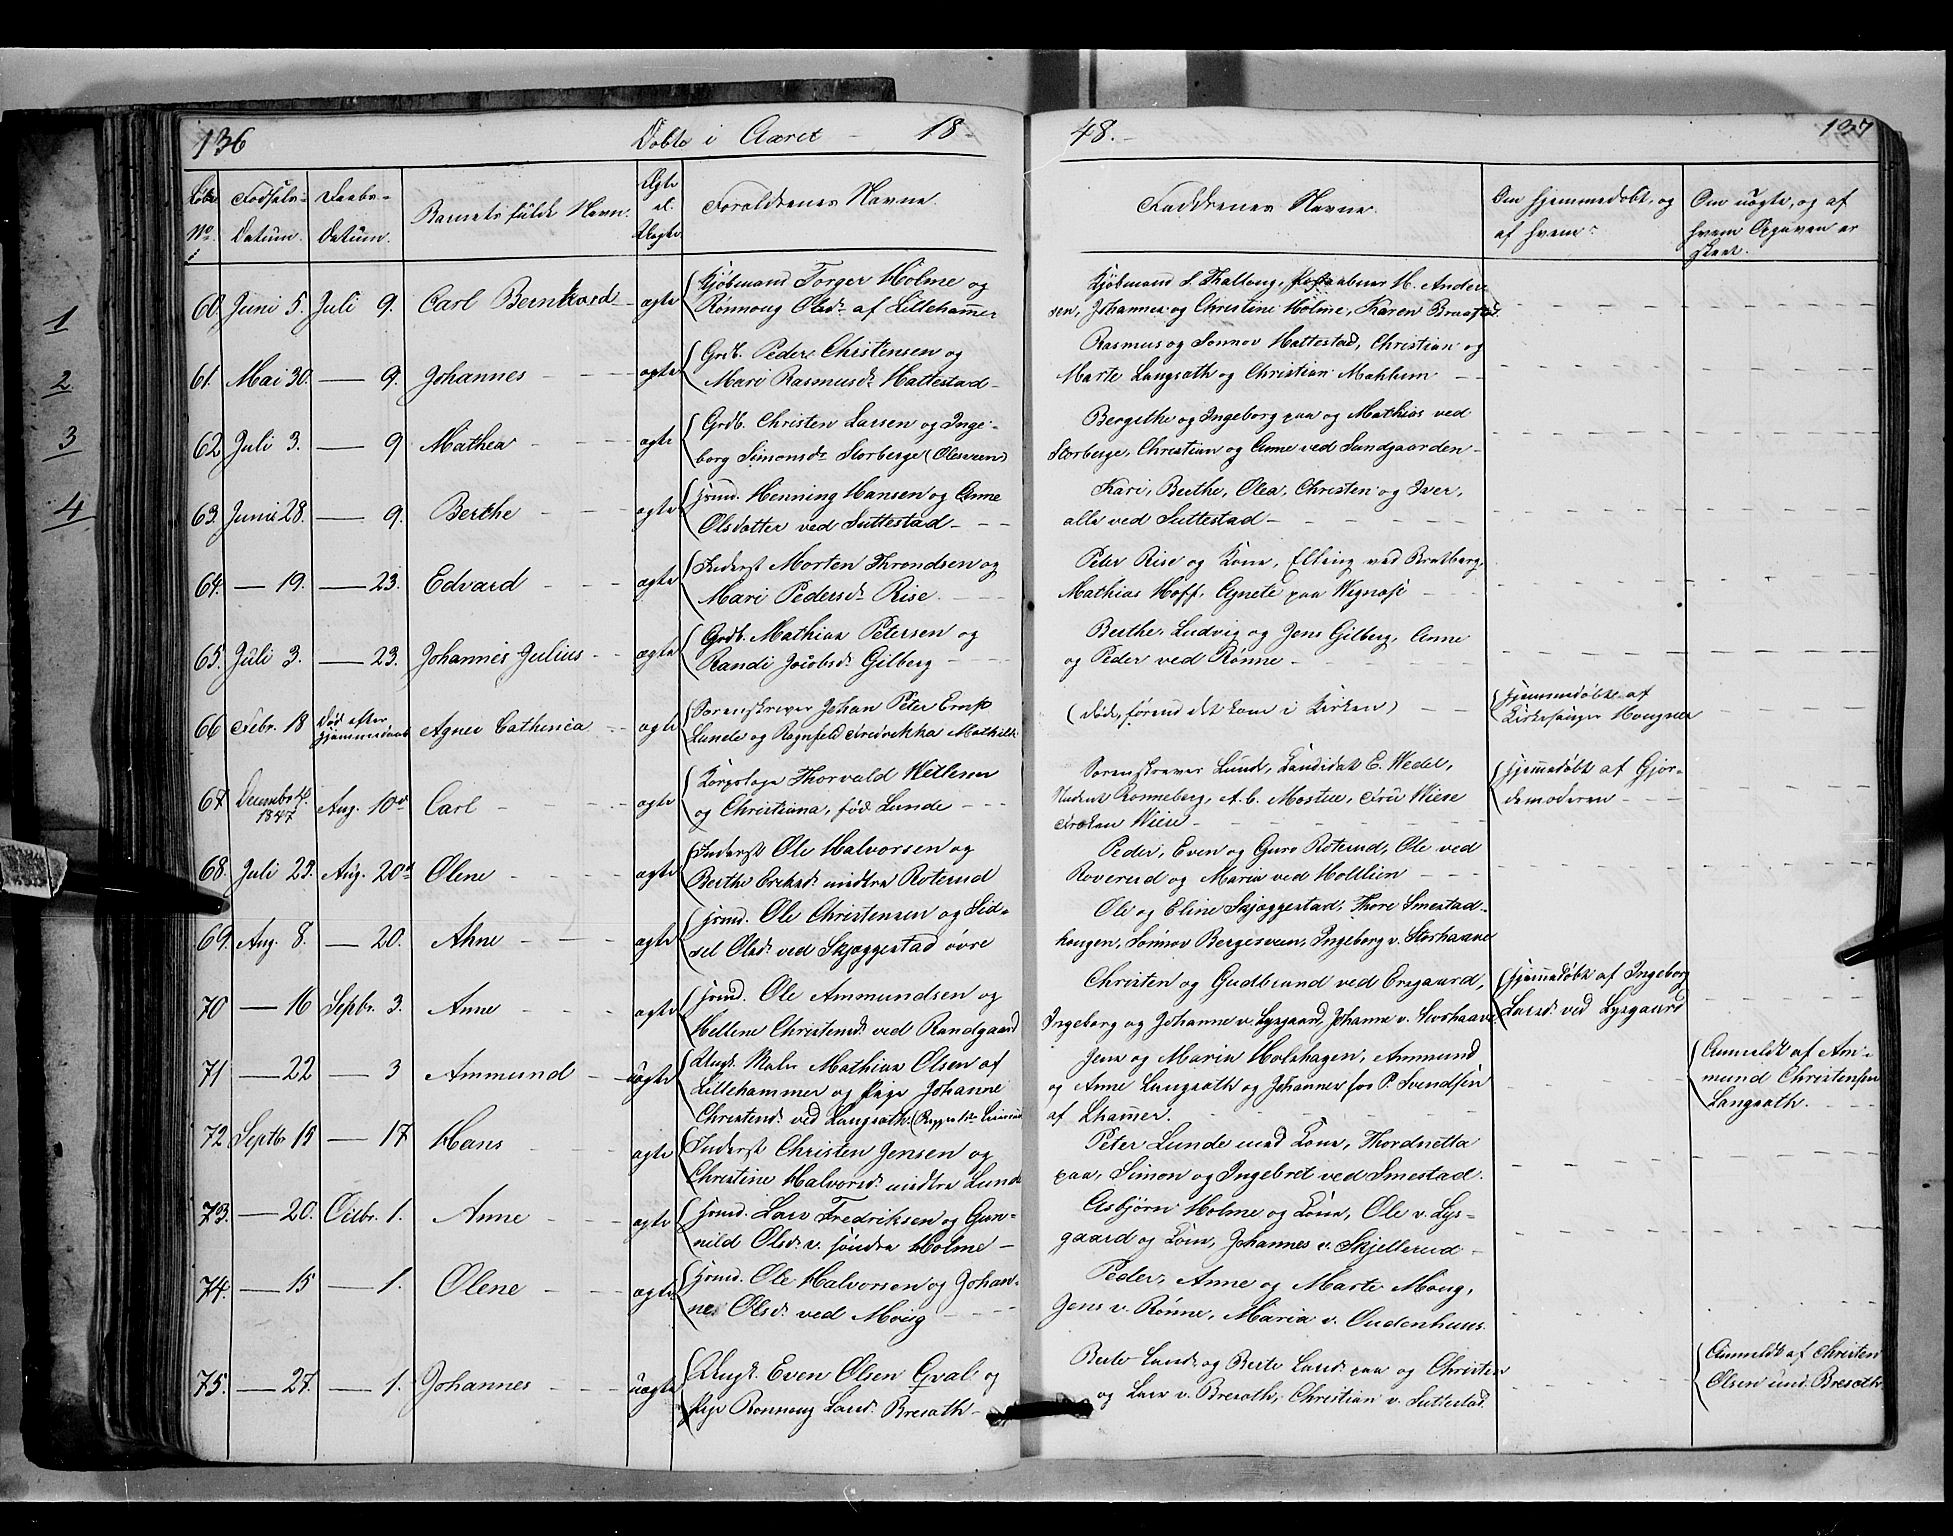 136 Døbte i Aaret – 18-
48.- 137
Løbe No. Fødsels-Datum. Daabs-Datum. Barnets fulde Navn. Ægte el. Uægte Forældrenes Navne.
Faddrenes Navne. Om hjemmedøbt, og af hvem? Om uægte, og af hvem Opgaven er skeet.
1
2
3
4
60. Juni 5. Juli 9. Carl Bernhard ægte Kjøbmand Torger Holme og
Rønnoug Olsdr af Lillehammer
Kjøbmand S. Thalloug, H. Ander-
sen, Johannes og Christine Holme, Karen Braastad.
61. Mai 30. — 9. Johannes ægte Grdb. Peder Christensen og
Mari Rasmusdr Hattestad
Rasmus og Sønnov Hattestad, Christian og
Marte Langsæth og Christian Mæhlum
62 Juli 3. — 9 Mathea ægte Grdb. Christen Larsen og Inge-
borg Simonsdr Storberge (Olesveen)
Bergithe og Ingeborg paa og Mathias ved
Storberge, Christian og Anne ved Sandgaarden
63. Juni 28. — 9. Berthe ægte Hmd. Henning Hansen og Anne
Olsdatter ved Suttestad
Kari, Berthe, Olea, Christen og Iver,
alle ved Suttestad
64. — 19. — 23. Edvard ægte Inderst Morten Throndsen og
Mari Pedersdr Rise.
Peter Rise og Kone, Elling ved Bratberg,
Mathias Hoff, Agnete paa
65. Juli 3. — 23. Johannes Julius ægte Grdb. Mathias Petersen og
Randi Jacobsdr Gilberg
Berthe, Ludvig og Jens Gilberg, Anne
og Peder ved Rønne
66 Febr. 18 Død efter hjemmedaab Agnes Cathinca ægte Sorenskriver Johan Peter Ernst
Lunde og Ragnfeld Fredrikka Mathilde
(døde, førend det kom i Kirken)
Hjemmedøbt af
Kirkesanger Hougner
67. Decembr 4. 1847 Aug. 10de Carl ægte Korpslæge Thorvald
og Christiana, fød Lunde
Sorenskriver Lund, Kandidat E. Wedel,
Student Rønneberg, A. C. Mostue, Fru Wiese
Frøken Wiese
Hjemmedøbt af Gjor-
demoderen
68. Juli 23. Aug. 20de Olene ægte Inderst Ole Halvorsen og
Berthe Eriksdr nedtre Roterud
Peder, Even og Guro Roterud, Ole ved
Roverud og Maria ved Holtlien
69. Aug. 8. — 20. Ahne ægte Hmd. Ole Christensen og Sid-
sel Olsdr ved Skjæggestad øvre
Ole og Eline Skjæggestad, Thore Smestad-
hougen, Sønnov Bergesveen, Ingeborg v. Storhaave
70 — 16 Septbr. 3. Anne ægte Hmd. Ole Ammundsen og
Hellene Christensdr ved Randgaard
Christen og Gudbrand ved Ensgaard,
Ingeborg og Johanne v. Lysgaard, Johanne v. Storhaave
Hjemmedøbt af Ingeborg
Larsdr ved Lysgaard
71 — 22 — 3 Ammund uægte Ungk. Maler Mathias Olsen af
Lillehammer og Pige Johanne
Christensdr ved Langsæth.
Jens og Maria Holshagen, Ammund
og Anne Langsæth og Johannes hos P. Svendsen
af Lhammer.
Anmeldt af Am-
mund Christensen
Langsæth.
72 Septbr 15 — 17 Hans ægte Inderst Christen Jensen og
Christine Halvorsdr nedtre Lund
Peter Lunde med Kone, Thordnetta
paa, Simon og Ingebret ved Smestad.
73. — 20. Octbr. 1. Anne ægte Hmd. Lars Fredriksen og Gun-
nild Olsdr v. søndre Holme
Asbjørn Holme og Kone, Ole v. Lys-
gaard og Kone, Johannes v. Skjellerud
74. — 15 — 1. Olene ægte Hmd. Ole Halvorsen og Johan-
ne Olsdr ved Moug
Peder, Anne og Marte Moug,
Jens v. Rønne, Maria v. Oudenhuus.
75. — 27. — 1. Johannes uægte Ungk. Even Olsen Qval og
Pige Rønnoug Larsdr Bresæth
Berte Larsdr og Berte Larsdr paa og Christen
og Lars v. Bresæth, Christian v. Suttestad.
Anmeldt af Christen
Olsen Bresæth